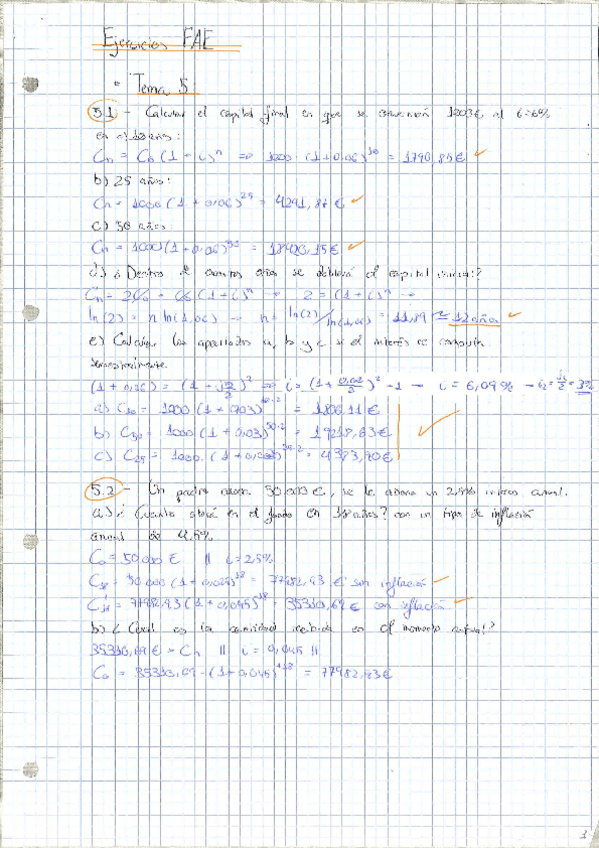 Ejercicios FAE
• Tema 5
5.1 - Calcular el capital final en que se convierten 1000€ al i=6%
en a) 10 años:
Cn = C0 (1 + i)^n ⇒ 1000 · (1+0.06)^10 = 1790,85€ ✓
b) 25 años:
Cn = 1000 (1 + 0.06)^25 = 4291,87€ ✓
c) 50 años:
Cn = 1000 (1 + 0.06)^50 = 18420,15€ ✓
d) ¿Dentro de cuantos años se doblará el capital inicial?
Cn = 2C0 = C0 (1+i)^n → 2 = (1+i)^n →
ln(2) = n ln(1,06) → n = ln(2)/ln(1,06) = 11,89 ≈ 12 años ✓
e) Calcular los apartados a, b y c si el interés es
semestralmente
= (1 + j2/2)^2 ⇒ i = (1 + 0.06/2)^2 - 1 → i = 6,09% → i2 = j2/2 = 3%
a) C10 = 1000 (1 + 0,03)^10·2 = 1806,11€
b) C50 = 1000 (1 + 0,03)^50·2 = 19218,63€
c) C25 = 1000 · (1 + 0,03)^25·2 = 4383,90€
5.2 - Un padre 50.000€, se le abona un 2,5% interes anual.
a) ¿Cuánto en el fondo en 18 años? con un tipo de inflación
anual de 4,5%
C0 = 50 000 € || i = 2,5%
C18 = 50 000 (1 + 0,025)^18 = 77982,93 € sin inflación ✓
C'18 = 77982,93 (1 + 0,045)^-18 = 35310,69€ con inflación ✓
b) ¿Cuál es la cantidad recibida en el momento actual?
35310,69€ = Cn || i = 0,045 ||
C0 = 35310,69 · (1 + 0,045)^+18 = 77982,93€
1